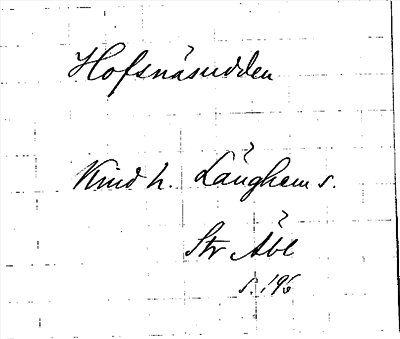 Hofsnäsudden
Kind h. Länghem s.
Str Åbl
s. 196